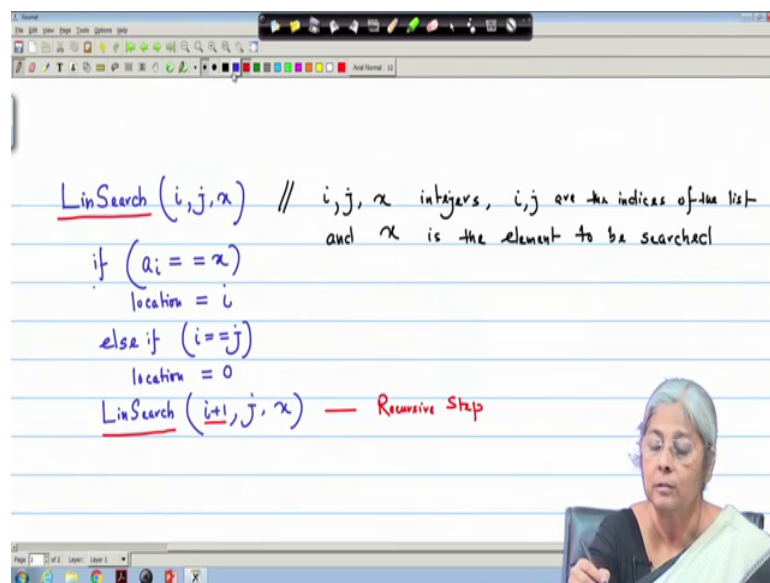 Journal
File Edit View Page Tools Options Help
Arial Normal 12
LinSearch (i, j, x) // i, j, x integers, i,j are the indices of the list
and x is the element to be searched
if (ai == x)
location = i
else if (i == j)
location = 0
LinSearch (i+1, j, x) — Recursive Step
Page 2 of 2 Layer: Layer 1